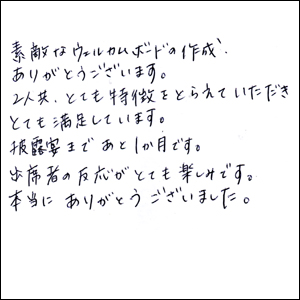 素敵なウェルカムボードの作成、
ありがとうございます。
2人共、とても特徴をとらえていただき
とても満足しています。
披露宴まであと1か月です。
出席者の反応がとても楽しみです。
本当にありがとうございました。